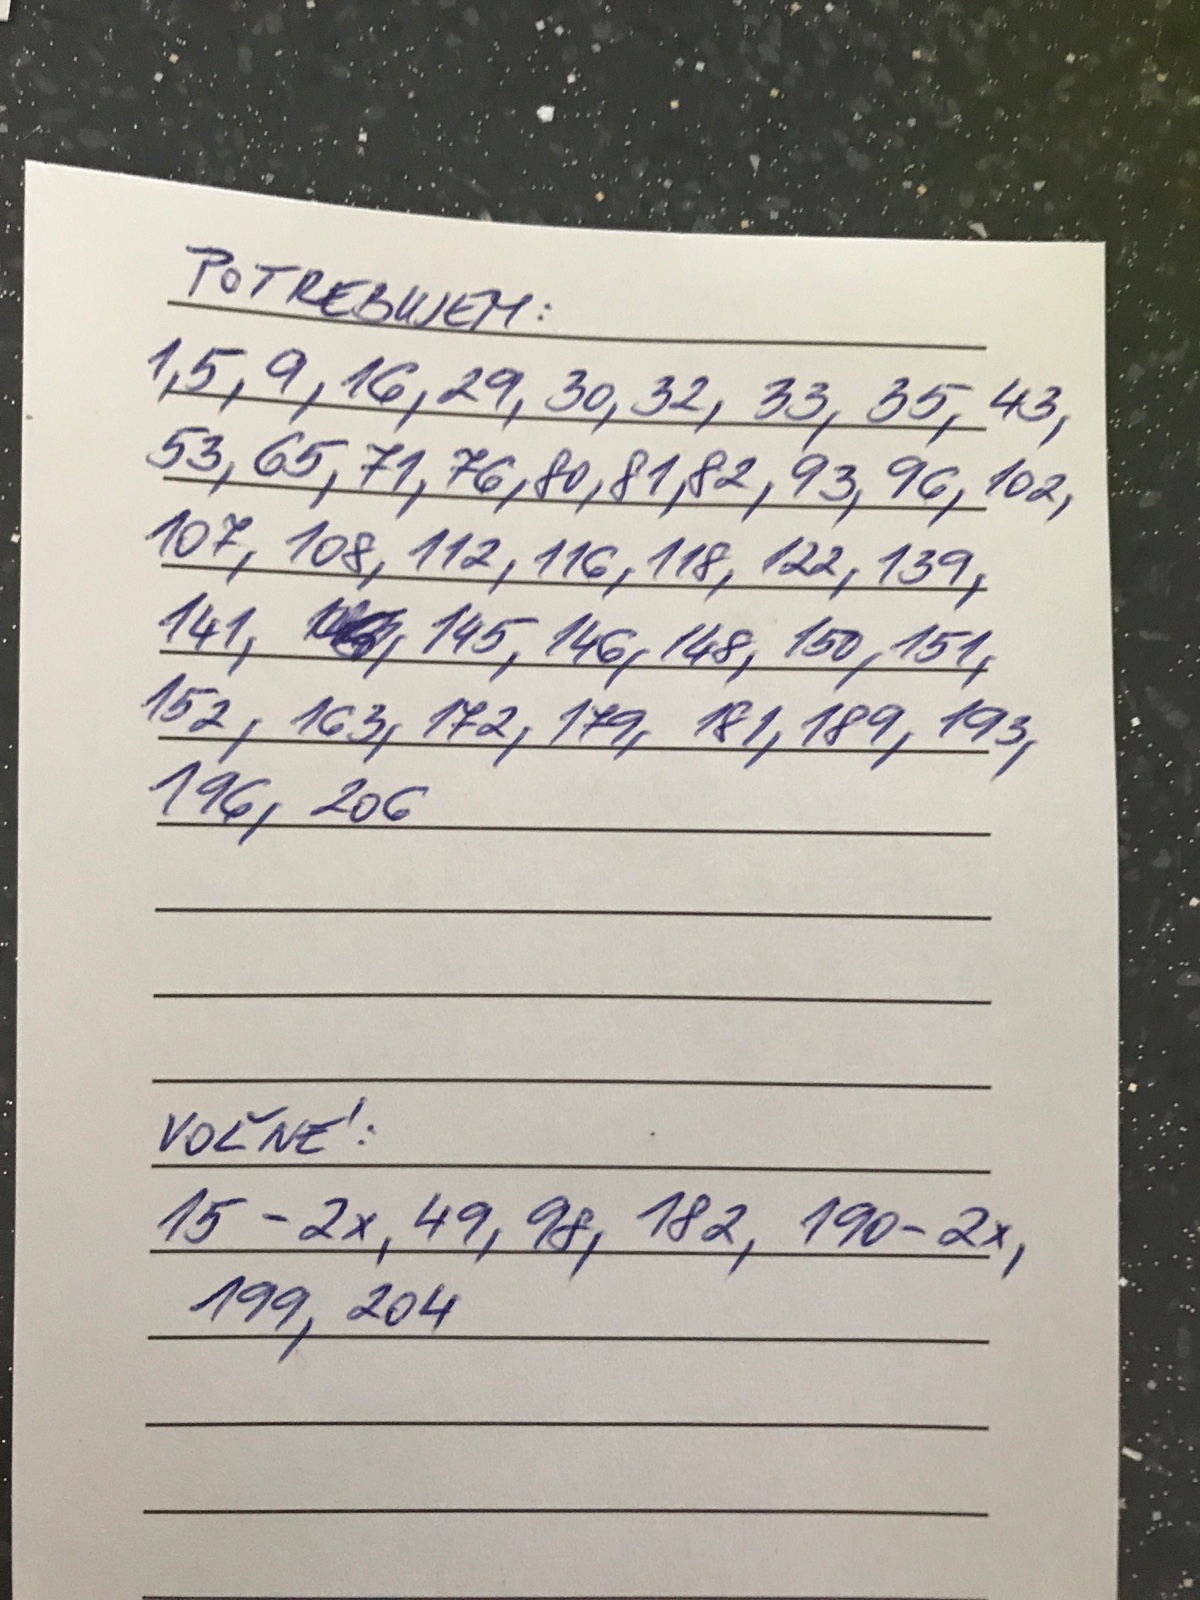 POTREBUJEM:
1,5, 9, 16, 29, 30, 32, 33, 35, 43,
53, 65, 71, 76, 80, 81, 82, 93, 96, 102,
107, 108, 112, 116, 118, 122, 139,
141, 145, 146, 148, 150, 151,
152, 163, 172, 179, 181, 189, 193,
196, 206
VOĽNÉ:
15 - 2x, 49, 98, 182, 190 - 2x,
199, 204